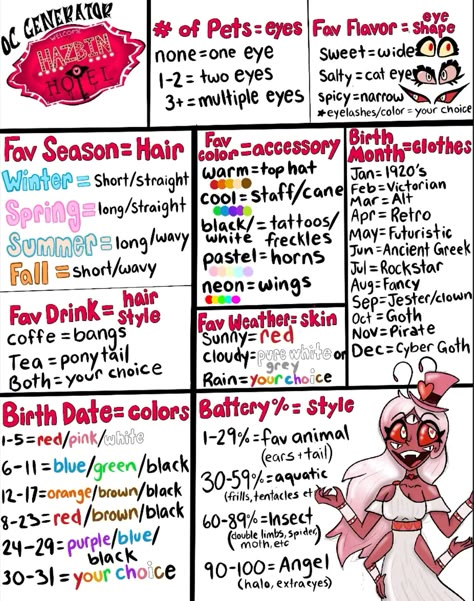 OC GENERATOR
WELCOME
HAZBIN
HOTEL
# of Pets=eyes
none=one eye
1-2= two eyes
3+=multiple eyes
Fav Flavor= eye shape
Sweet=wide
Salty= cat eye
Spicy=narrow
*eyelashes/color= your choice
Fav Season= Hair
Winter= Short/straight
Spring= long/straight
Summer= long/wavy
Fall= short/wavy
Fav Drink= hair style
coffe= bangs
Tea= ponytail
Both= your choice
Fav color=accessory
warm=top hat
cool=staff/cane
black/white=tattoos/freckles
pastel=horns
neon=wings
Fav Weather=skin
Sunny=red
cloudy=pure white or grey
Rain=your choice
Birth Month=clothes
Jan= 1920's
Feb=Victorian
Mar= Alt
Apr= Retro
May=Futuristic
Jun=Ancient Greek
Jul= Rockstar
Aug=Fancy
Sep=Jester/clown
Oct= Goth
Nov=Pirate
Dec=Cyber Goth
Birth Date= colors
1-5= red/pink/white
6-11= blue/green/black
12-17=orange/brown/black
8-23= red/brown/black
24-29=purple/blue/black
30-31=your choice
Battery%= style
1-29%=fav animal
(ears+tail)
30-59%=aquatic
(frills,tentacles etc
60-89%=Insect
(double limbs, spider,
moth, etc
90-100= Angel
(halo, extra eyes)